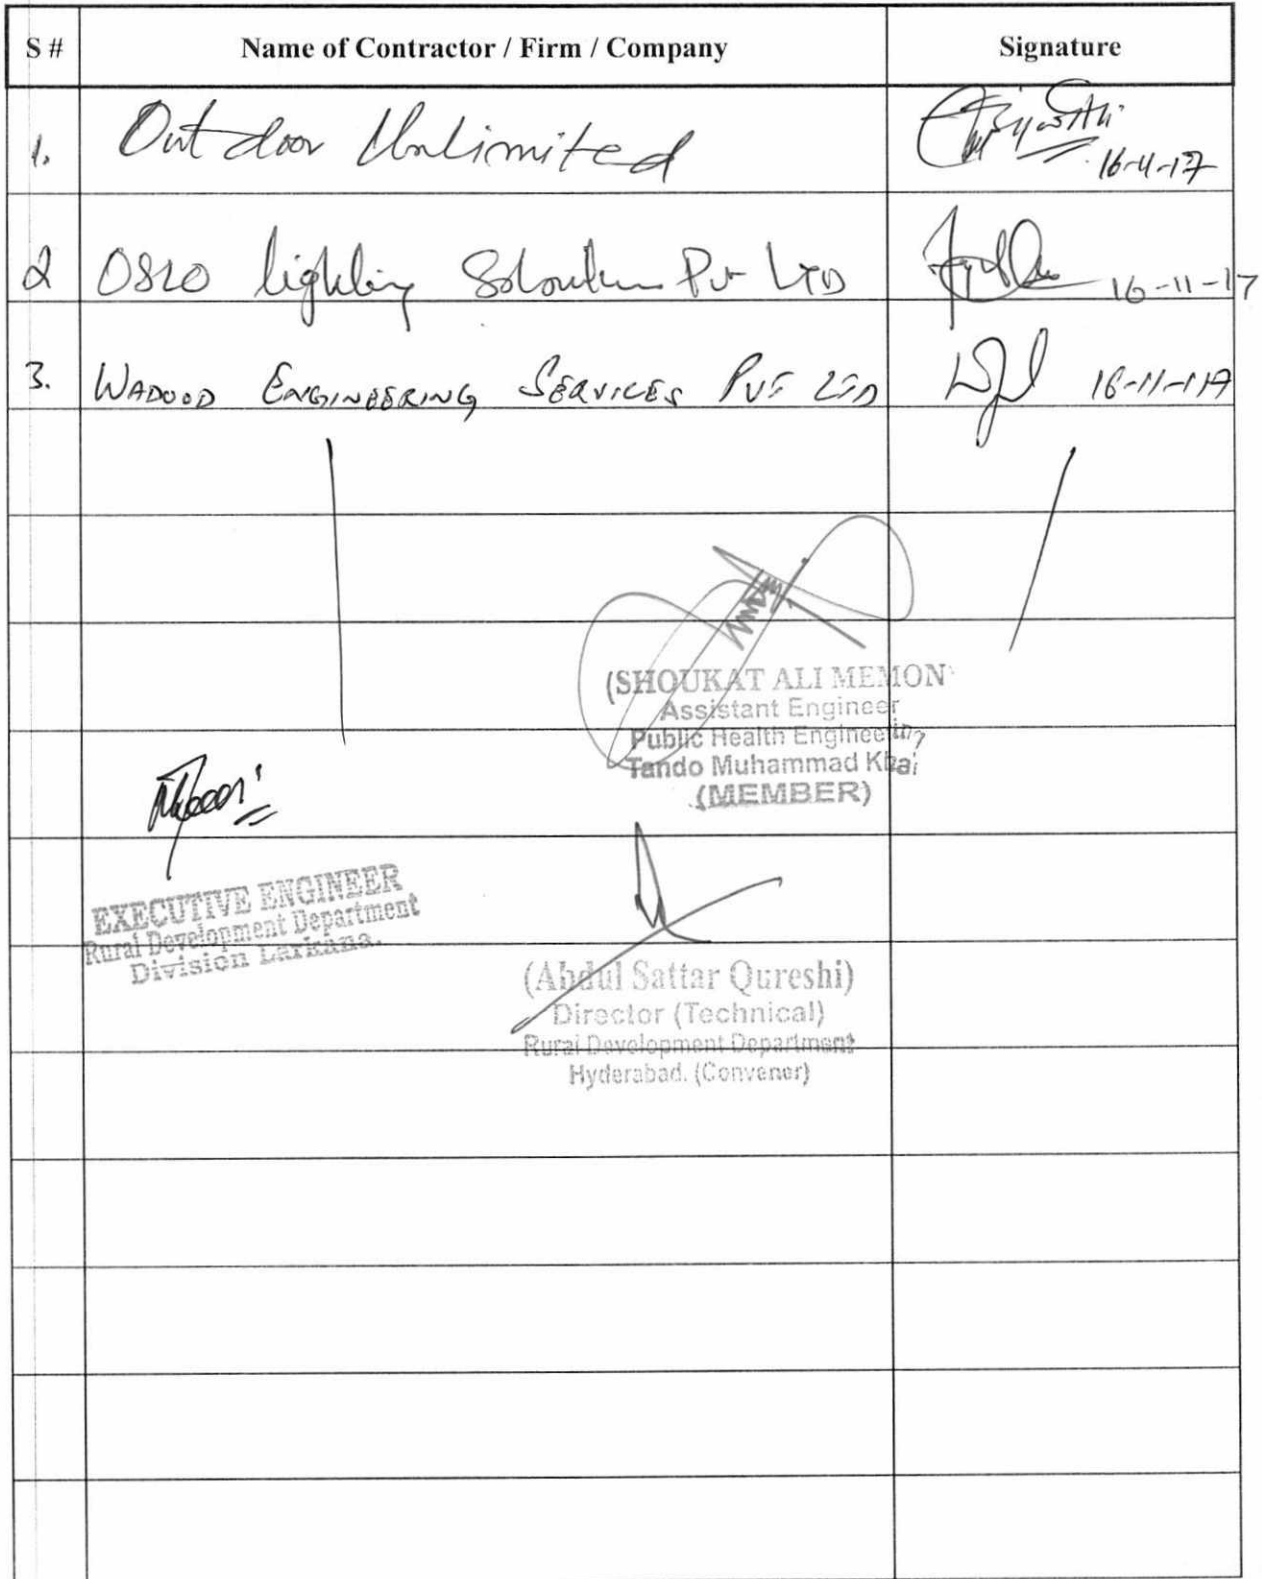 S # Name of Contractor / Firm / Company Signature
1. Outdoor Unlimited 16-11-17
2 OSLO lighting Soloution Pvt LTD 16-11-17
3. WADOOD ENGINEERING SERVICES PVT LTD 16-11-17
(SHOUKAT ALI MEMON
Assistant Engineer
Public Health Engineering
Tando Muhammad Khai
(MEMBER)
EXECUTIVE ENGINEER
Rural Development Department
Division Larkana.
(Abdul Sattar Qureshi)
Director (Technical)
Rural Development Department
Hyderabad. (Convener)